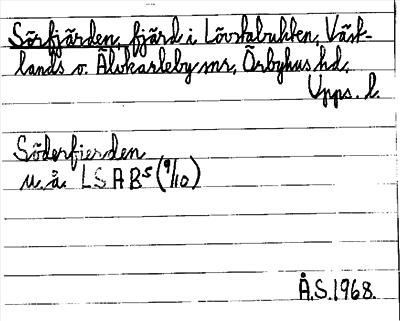 Sörfjärden, fjärd i Lövstabukten, Väst-
lands o. Älvkarleby snr, Örbyhus hd,
Upps. l.
Söderfierden
u. å. LSA B5 (9/10)
Å.S. 1968.